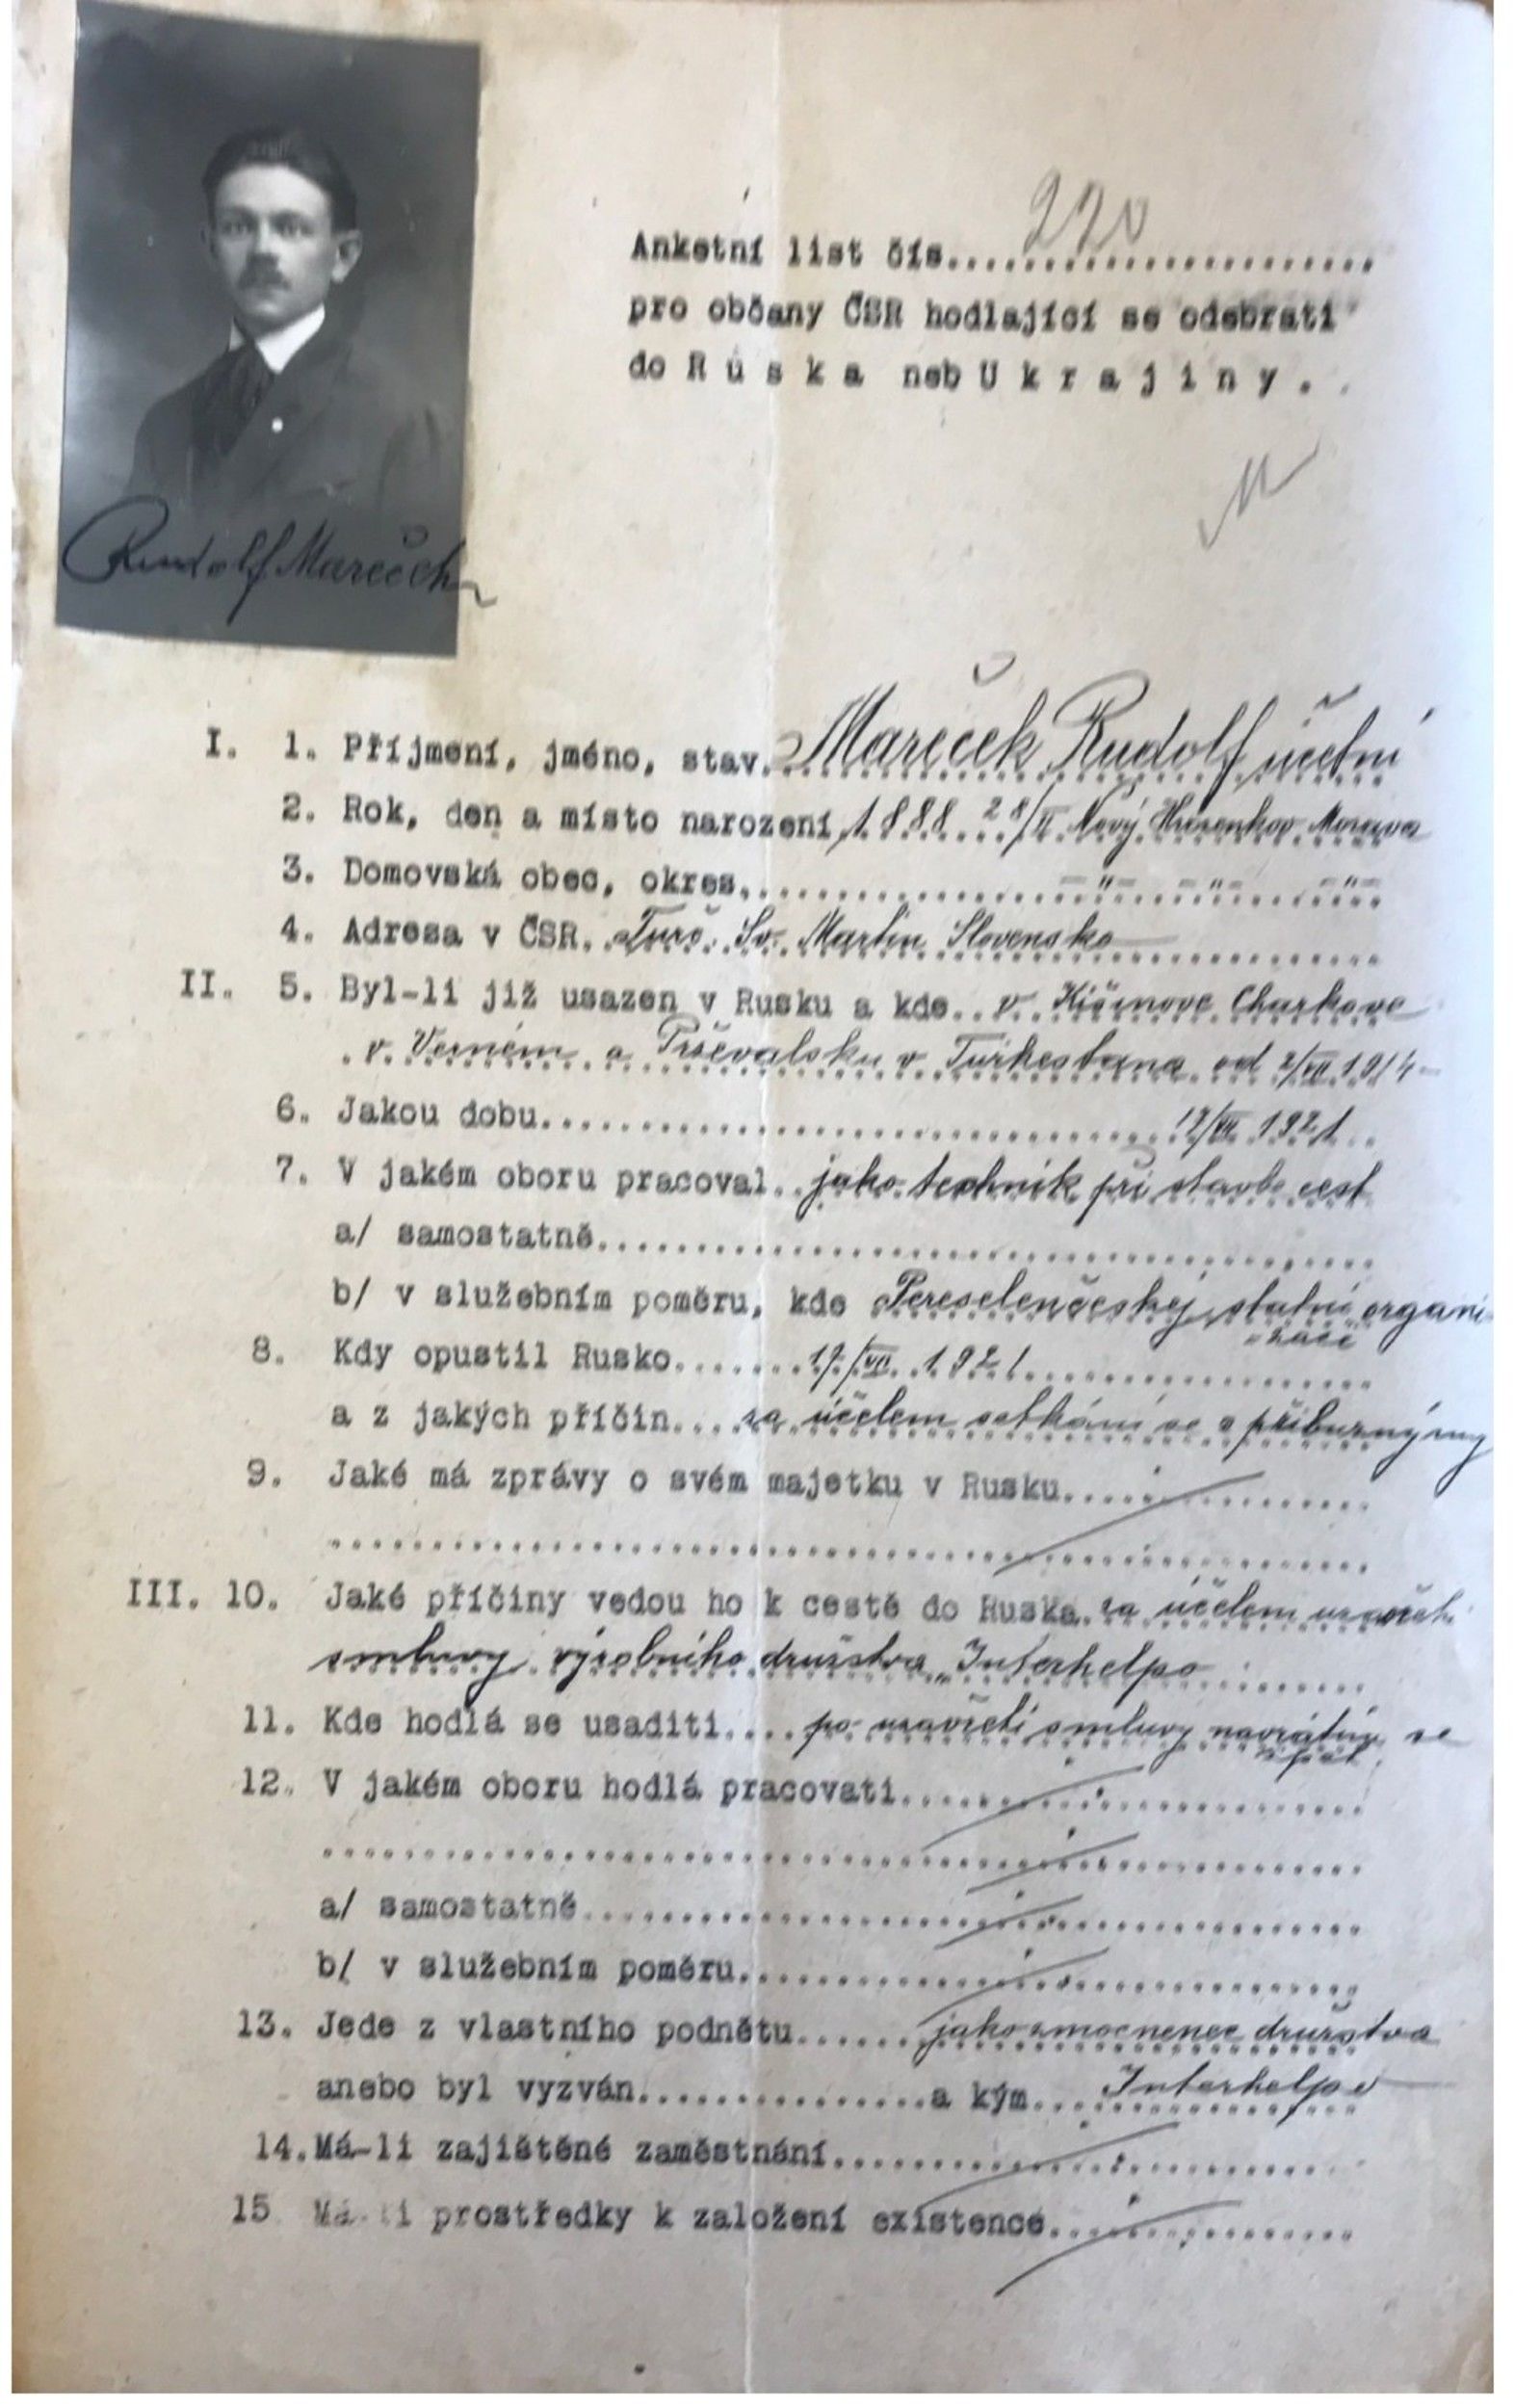 Rudolf Mareček
Anketní list čís. 220
pro občany ČSR hodlající se odebrati
do Ruska neb Ukrajiny.
I. 1. Příjmení, jméno, stav. Mareček Rudolf účetní
2. Rok, den a místo narození 1888 28/II Nový Hrozenkov Morava
3. Domovská obec, okres. -"- -"- -"-
4. Adresa v ČSR. Turč. Sv. Martin Slovensko
II. 5. Byl-li již usazen v Rusku a kde. v Kišinove Charkove
v Verném a Prževalsku v Turkestana od 2/VII 1914-
6. Jakou dobu 17/VII 1921
7. V jakém oboru pracoval. jako technik při stavbe cest
a/ samostatně
b/ v služebním poměru, kde Pereselenčeskej statní organi-
zaci
8. Kdy opustil Rusko 17/VII 1921
a z jakých příčin za účelem setkání se s příbuznými
9. Jaké má zprávy o svém majetku v Rusku
III. 10. Jaké příčiny vedou ho k cestě do Ruska. za účelem uzavřeti
smluvy výrobního družstva „Interhelpo
11. Kde hodlá se usaditi po uzavřeti smluvy navrátím se
zpět
12. V jakém oboru hodlá pracovati
a/ samostatně
b/ v služebním poměru
13. Jede z vlastního podnětu jako zmocnenec družstva
anebo byl vyzván a kým Interhelpo
14. Má-li zajištěné zaměstnání
15 Má-li prostředky k založení existence